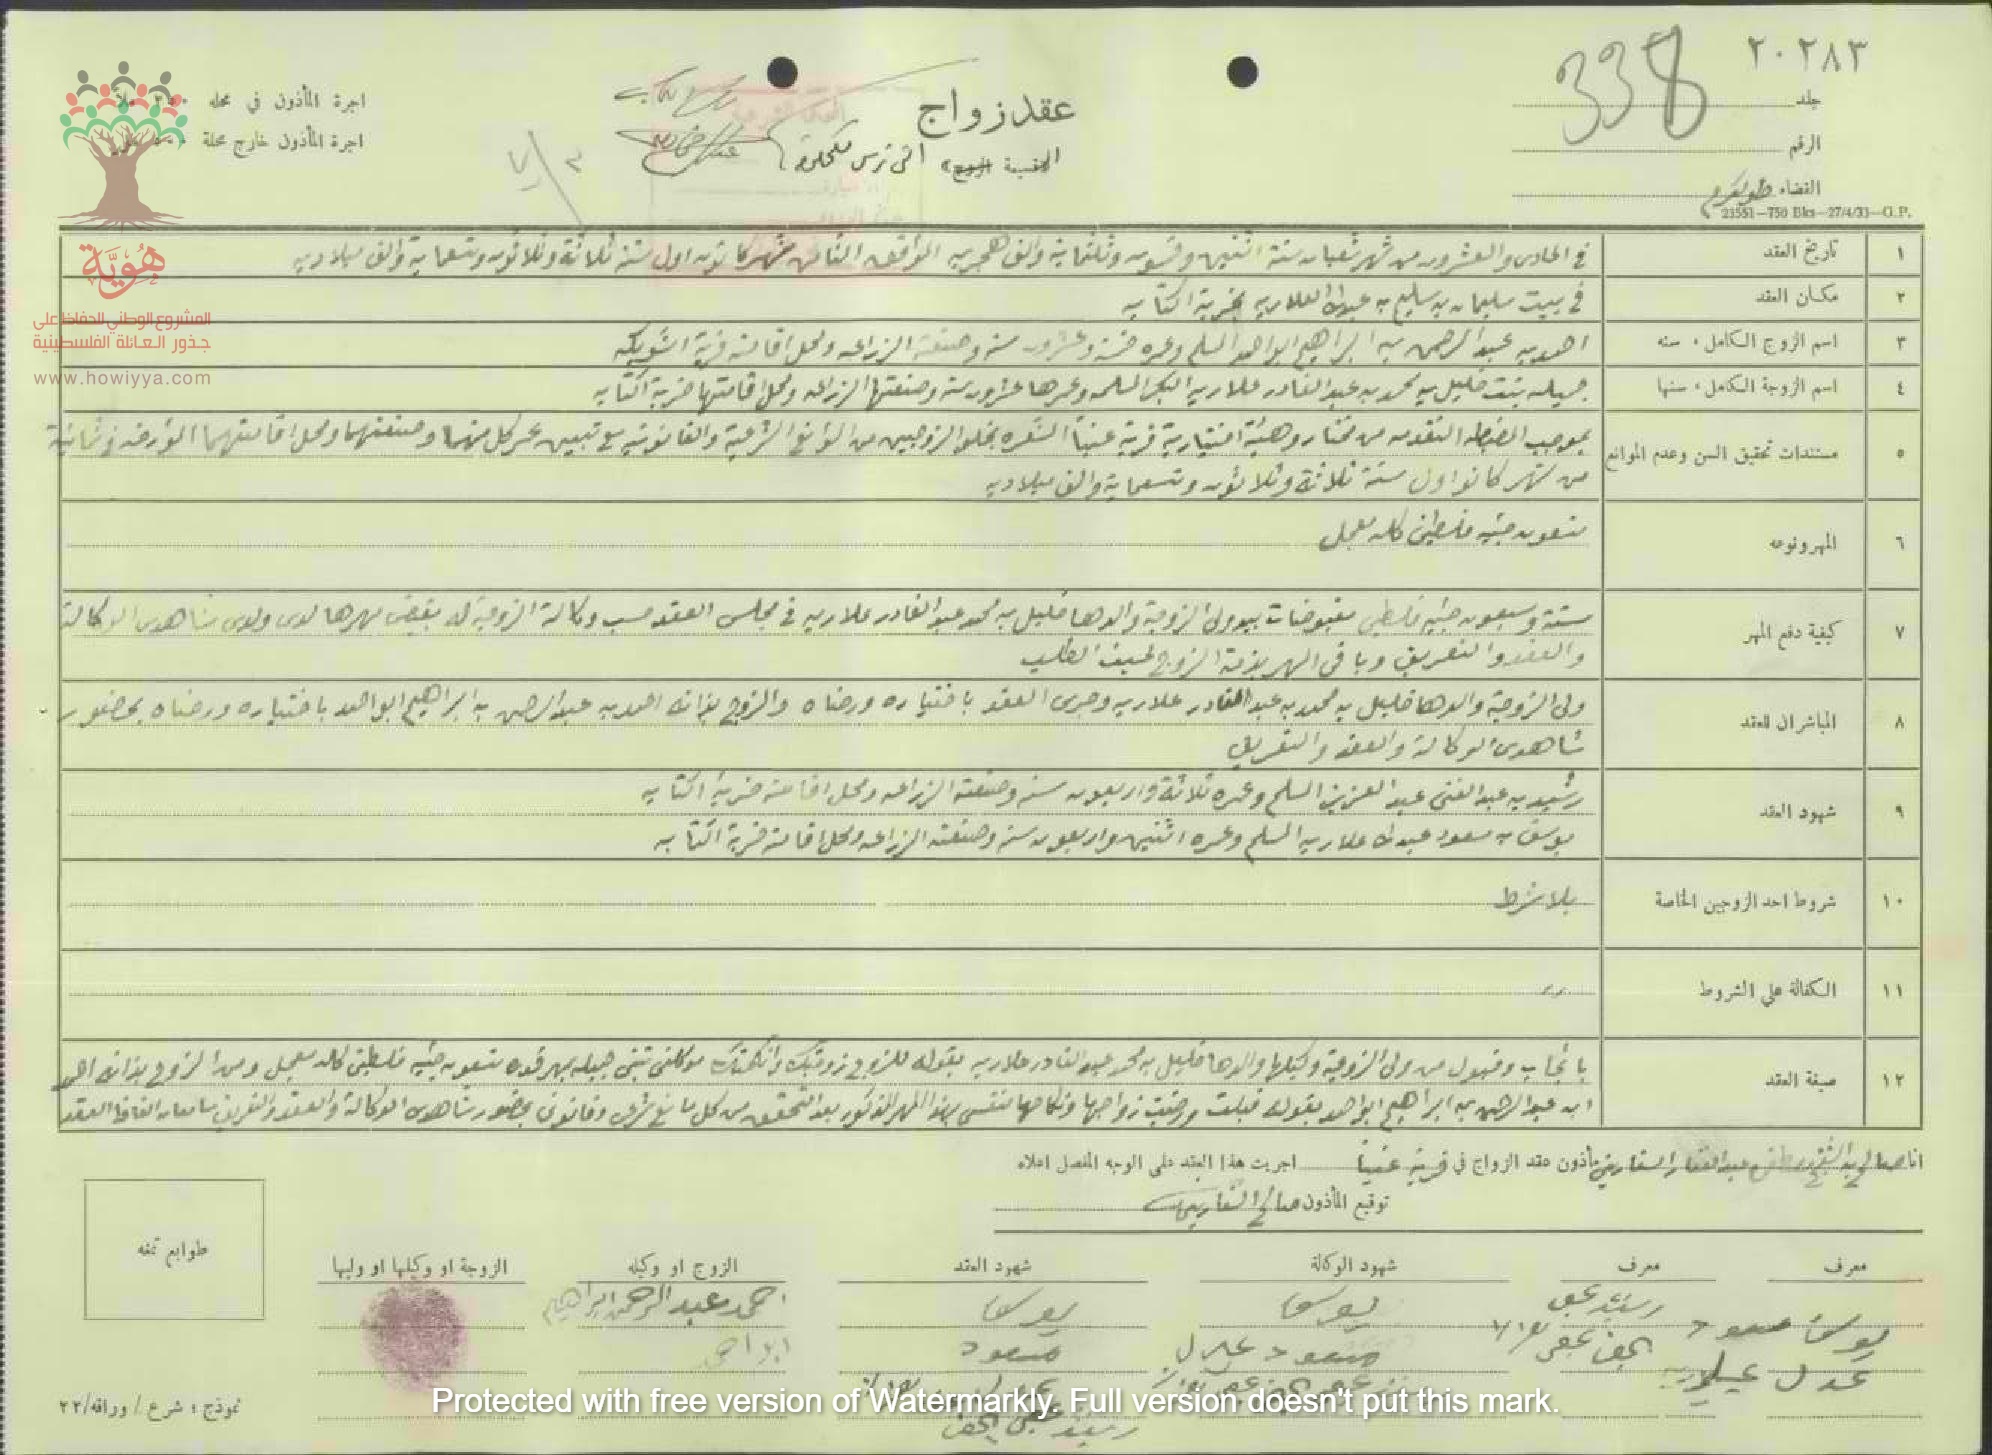 ٢٠٢٨٣
338
جلد
الرقم
القضاء طولكرم
23551—750 Bks—27/4/33—G.P.
عقد زواج
اجرة المأذون في محله
اجرة المأذون خارج محلة
هُويّة
المشروع الوطني للحفاظ على
جذور العائلة الفلسطينية
www.howiyya.com
١ تاريخ العقد في الحادي والعشرون من شهر شعبان سنة اثنتين وخمسون وثلثماية والف هجريه الموافق الثامن شهر كانون اول سنة ثلاثة وثلاثون وتسعماية والف ميلاديه
٢ مكان العقد في بيت سليمان بن سليم بن عبدالله بخربة اكتابه
٣ اسم الزوج الكامل ، سنه احمد بن عبد الرحمن بن ابراهيم ابو احمد المسلم وعمره خمسة وعشرون سنه وصنعته الزراعه ومحل اقامته قرية الشويكه
٤ اسم الزوجة الكامل ، سنها جميله بنت خليل بن محمد بن عبد القادر البكر المسلمه وعمرها عشرون سنه وصنعتها الزراعه ومحل اقامتها خربة اكتابه
٥ مستندات تحقيق السن وعدم الموانع بموجب المضبطه المتقدمه من مختار وهيئة اختيارية قرية عنبتا المشعره بخلو الزوجين من الموانع الشرعية والقانونيه مع تعيين عمر كل منهما وصنعتهما ومحل اقامتهما المؤرخه في ثمانية
من شهر كانو اول سنة ثلاثة وثلاثون وتسعماية والف ميلاديه
٦ المهر ونوعه تسعون جنيه فلسطيني كله معجل
٧ كيفية دفع المهر ستة وسبعون جنيه فلسطيني مقبوضات بيد ولي الزوجة والدها خليل بن محمد عبد القادر في مجلس العقد حسب وكالة الزوجة له بقبض مهرها لدى ولدى شاهدي الوكالة
والعقد والتعريف وباقي المهر بذمة الزوج لحين الطلب
٨ المباشران للعقد ولي الزوجة والدها خليل بن محمد بن عبد القادر وجرى العقد باختياره ورضاه والزوج بذاته احمد بن عبد الرحمن بن ابراهيم ابو احمد باختياره ورضاه بحضور
شاهدي الوكالة والعقد والتعريف
٩ شهود العقد رشيد بن عبد الغني عبد العزيز المسلم وعمره ثلاثة واربعون سنه وصنعته الزراعه ومحل اقامته خربة اكتابه
يوسف بن مسعود عبدالله المسلم وعمره اثنين واربعون سنه وصنعته الزراعه ومحل اقامته خربة اكتابه
١٠ شروط احد الزوجين الخاصة بلا شرط
١١ الكفالة على الشروط
١٢ صيغة العقد بايجاب وقبول من ولي الزوجة وكيلها والدها خليل بن محمد عبد القادر بقوله للزوج زوجتك وانكحتك موكلتي بنتي جميله بمهر قدره تسعون جنيه فلسطيني كله معجل ومن الزوج بذاته احمد
ابن عبد الرحمن بن ابراهيم ابو احمد بقوله قبلت ورضيت زواجها ونكاحها لنفسي بهذا المهر المذكور بعد التحقق من كل مانع شرعي وقانوني بحضور شاهدي الوكالة والعقد والتعريف سامعان الفاظ العقد
انا صالح بن الشيخ عبد الغفار السفاريني مأذون عقد الزواج في قرية عنبتا اجريت هذا العقد على الوجه المفصل اعلاه
توقيع المأذون صالح السفاريني
معرف معرف شهود الوكالة شهود العقد الزوج او وكيله الزوجة او وكيلها او وليها
طوابع تمغه
يوسف مسعود
يوسف
مسعود
يوسف
مسعود
احمد عبد الرحمن ابراهيم
ابو احمد
نموذج : شرع / وراقه/٢٢
Protected with free version of Watermarkly. Full version doesn't put this mark.